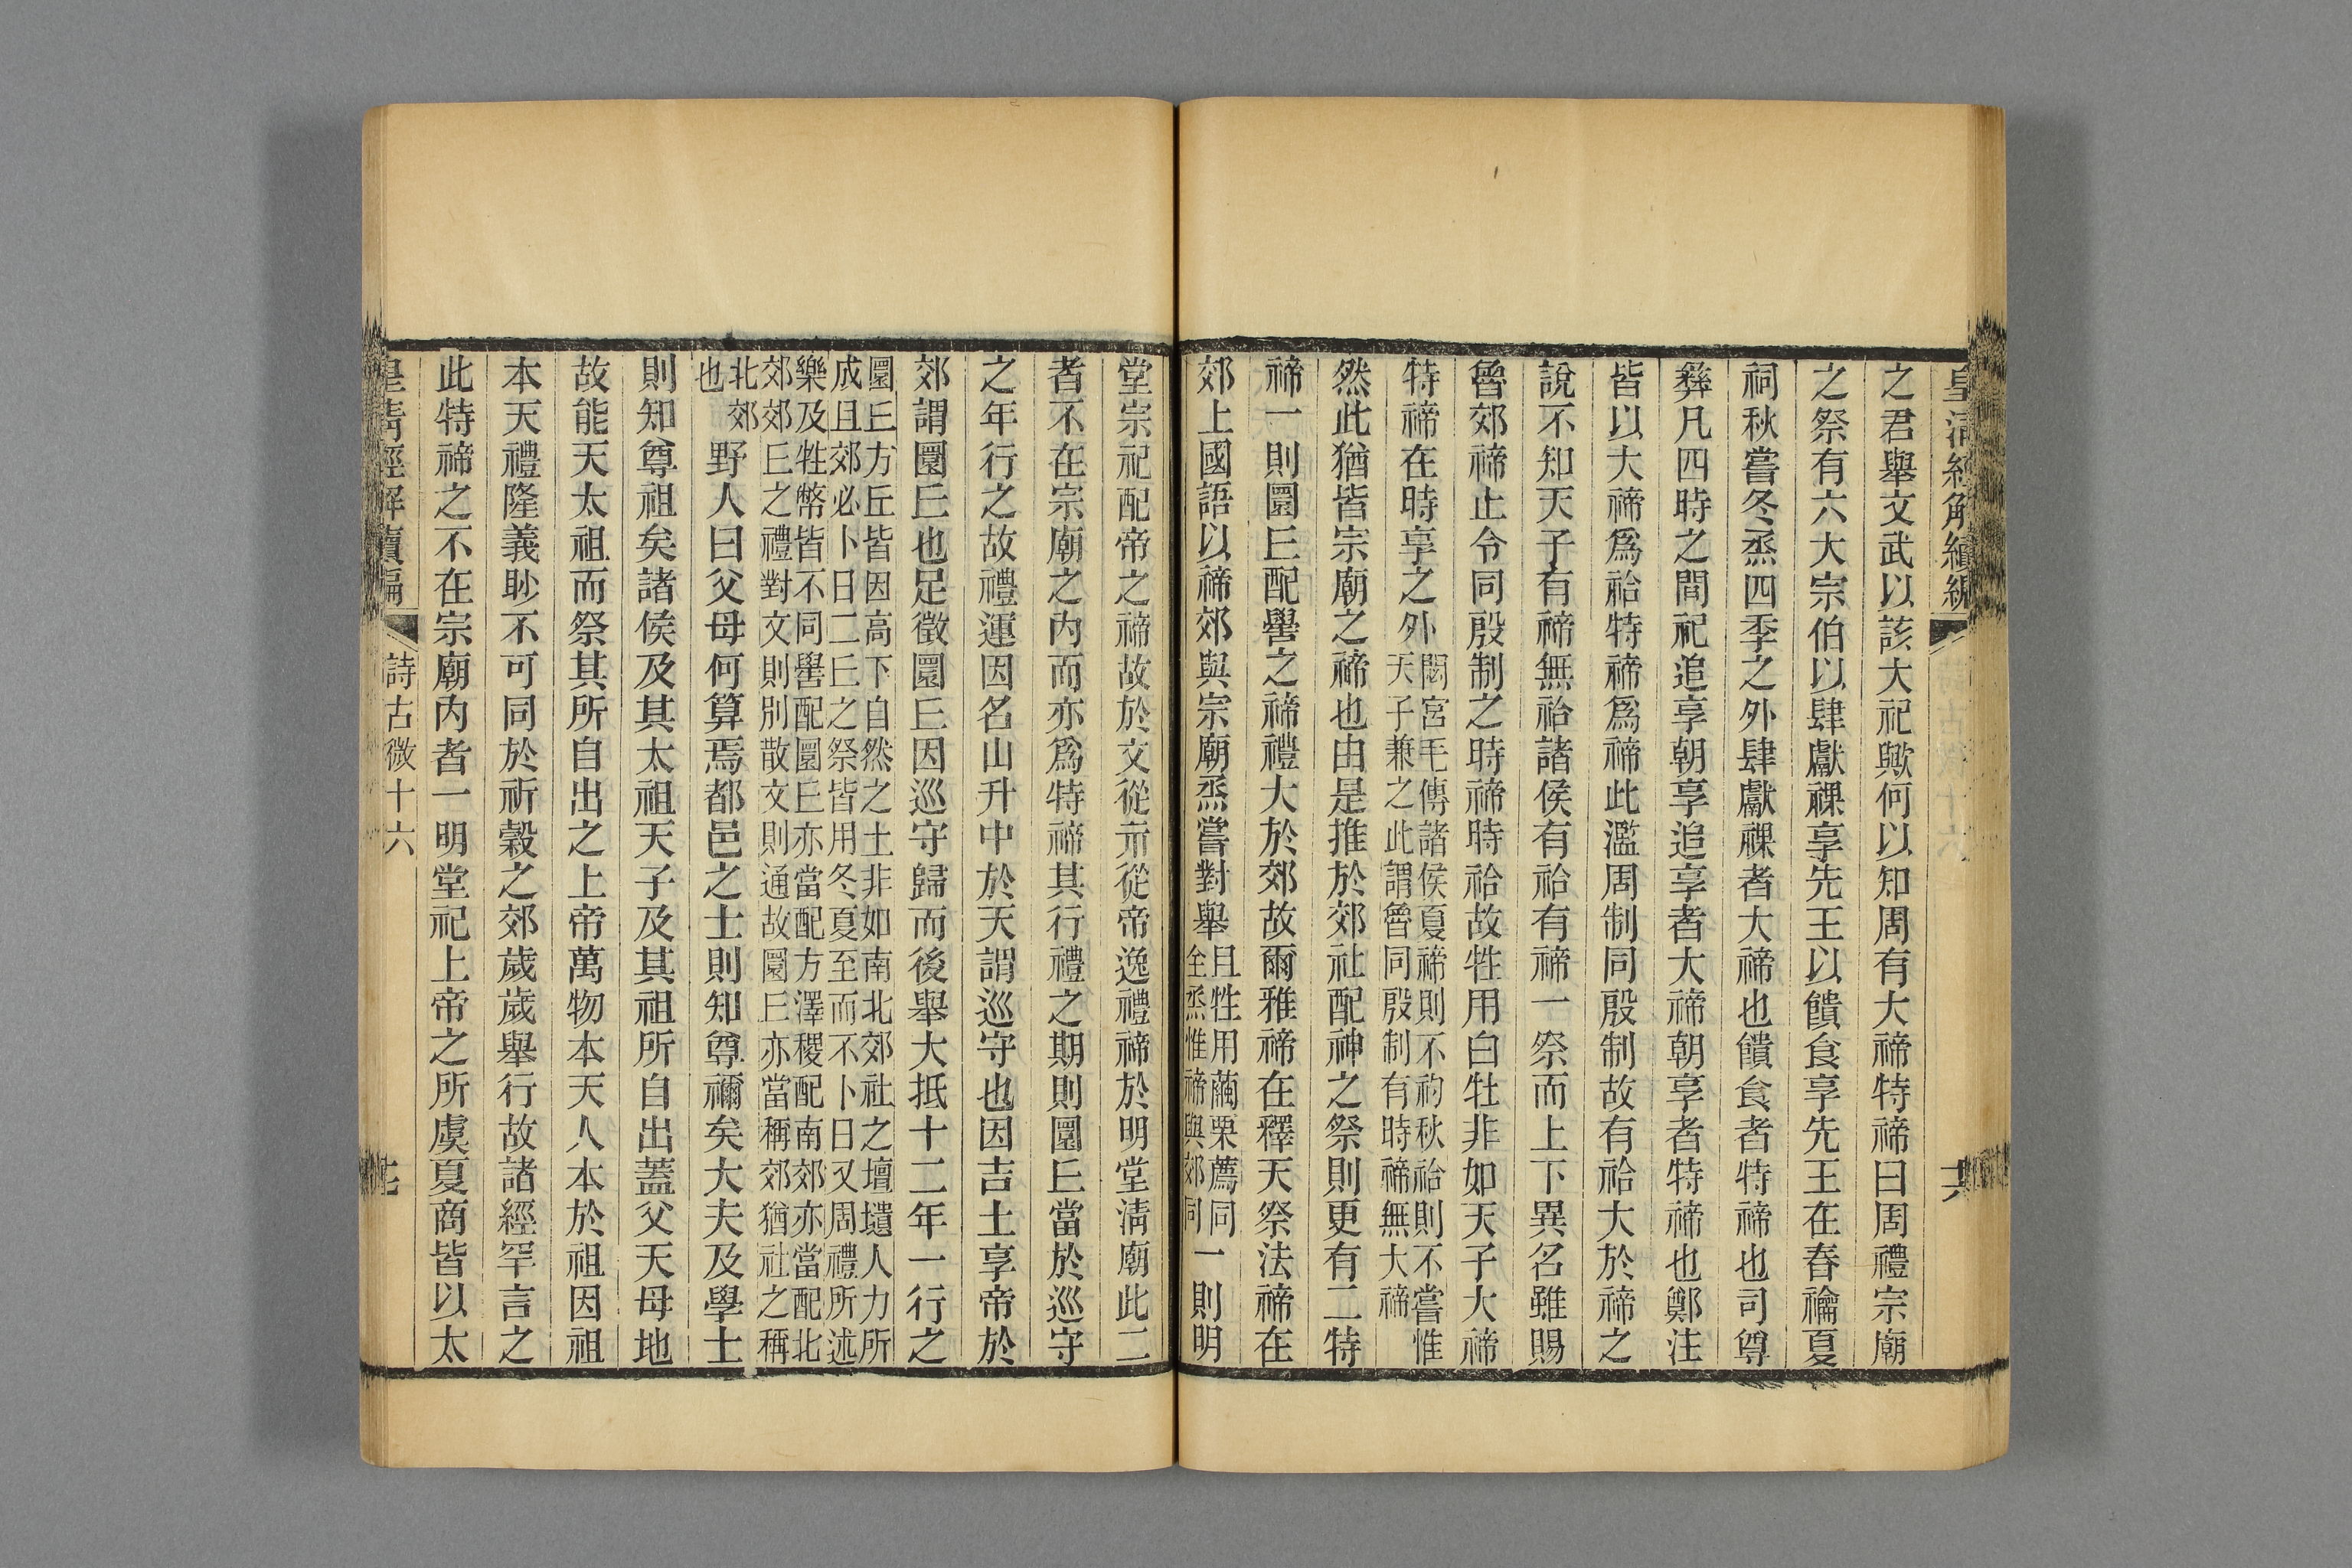 皇清經解續編
之君舉文武以該大祀歟何以知周有大禘特禘曰周禮宗廟
之祭有六大宗伯以肆獻祼享先王以饋食享先王在春禴夏
祠秋嘗冬烝四季之外肆獻祼者大禘也饋食者特禘也司尊
彝凡四時之間祀追享朝享追享者大禘朝享者特禘也鄭注
皆以大禘爲祫特禘爲禘此濫周制同殷制故有祫大於禘之
說不知天子有禘無祫諸侯有祫有禘一祭而上下異名雖賜
魯郊禘止令同殷制之時禘時祫故牲用白牡非如天子大禘
特禘在時享之外
閟宮毛傳諸侯夏禘則不礿秋祫則不嘗惟
天子兼之此謂魯同殷制有時禘無大禘
然此猶皆宗廟之禘也由是推於郊社配神之祭則更有二特
禘一則圜𠀉配嚳之禘禮大於郊故爾雅禘在釋天祭法禘在
郊上國語以禘郊與宗廟烝嘗對舉
且牲用繭栗薦同
全烝惟禘與郊同
一則明
堂宗祀配帝之禘故於文從示從帝逸禮禘於明堂淸廟此二
者不在宗廟之內而亦爲特禘其行禮之期則圜𠀉當於巡守
之年行之故禮運因名山升中於天謂巡守也因吉土享帝於
郊謂圜𠀉也足徵圜𠀉因巡守歸而後舉大抵十二年一行之
圜𠀉方丘皆因高下自然之土非如南北郊社之壇壝人力所
成且郊必卜日二𠀉之祭皆用冬夏至而不卜日又周禮所述
樂及牲幣皆不同嚳配圜𠀉亦當配方澤稷配南郊亦當配北
郊郊𠀉之禮對文則別散文則通故圜𠀉亦當稱郊猶社之稱
北郊
也
野人曰父母何算焉都邑之士則知尊禰矣大夫及學士
則知尊祖矣諸侯及其太祖天子及其祖所自出蓋父天母地
故能天太祖而祭其所自出之上帝萬物本天人本於祖因祖
本天禮隆義眇不可同於祈穀之郊歲歲舉行故諸經罕言之
此特禘之不在宗廟內者一明堂祀上帝之所虞夏商皆以太
皇淸經解續編
詩古微十六